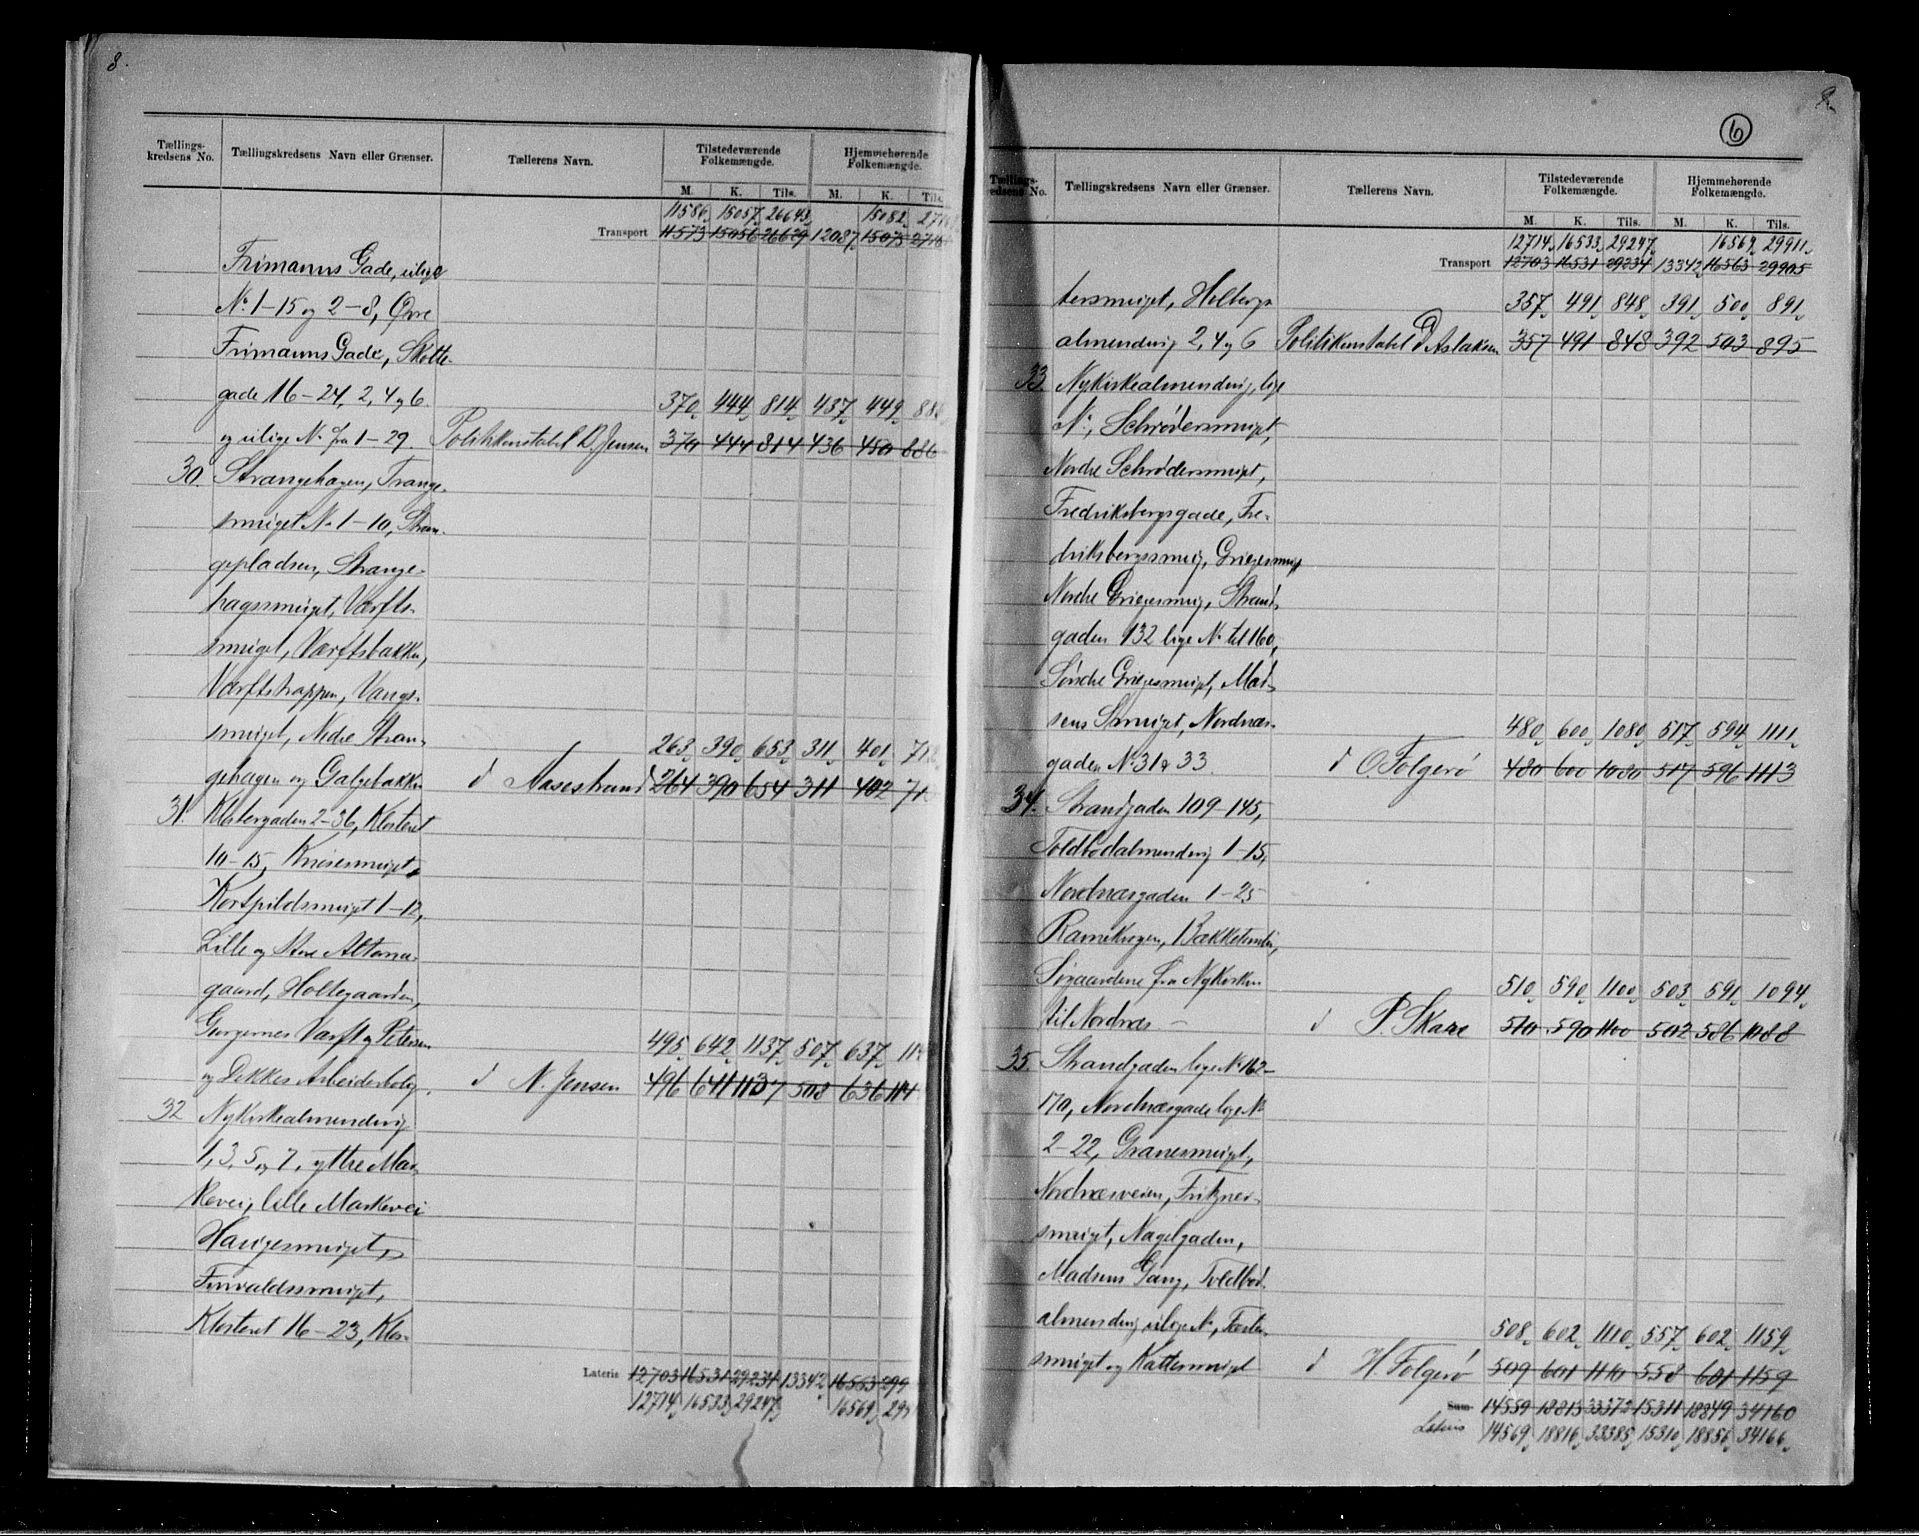 8.
Tællings-
kredsens No.
Tællingskredsens Navn eller Grænser.
Tællerens Navn.
Tilstedeværende
Folkemængde.
Hjemmehørende
Folkemængde.
M. K. Tils. M. K. Tils.
11586 15057 26643 15082
Transport 11573 15056 26629 12037 15073
Frimanns Gade, ulige
No 1-15 og 2-8, Øvre
Frimanns Gade, Skotte-
gade 16-24, 2, 4 og 6
370 444 814 437 449
og ulige No fra 1-29. Politikonstabel D. Jensen 370 444 814 436 450 886
30. Strangehagen, Trange-
smuget No 1-10, Stran-
gepladsen, Strange-
hagssmuget, Værfts-
smuget, Værftsbakken,
Værftstrappen, Vangs-
smuget, Nedre Stran-
263 390 653 311 401
gehagen og Galgebakken d Aasestrand 264 390 654 311 402
31. Klostergaden 2-36, Klosteret
10-15, Knøsesmuget,
Kortspildsmuget 1-12,
Lille og Store Altona-
gaard, Holtegaarden,
Gørgernes Værft og Petersen
495 642 1137 507 637
og Dekkes Arbeiderbolig. d N. Jensen 496 641 1137 508 636
32 Nykirkealmendvig
1, 3, 5 og 7, ytre Mar-
kevei, lille Markevei
Haugesmuget,
Finvaldssmuget,
Klosteret 16-23, Klos-
Lateris 12703 16531 29234 13342 16563
12714 16533 29247 16569
6
Tællings-
kredsens No.
Tællingskredsens Navn eller Grænser.
Tællerens Navn.
Tilstedeværende
Folkemængde.
Hjemmehørende
Folkemængde.
M. K. Tils. M. K. Tils.
12714 16533 29247 16569 29911
Transport 12703 16531 29234 13342 16563 29905
tersmuget, Holbergs
357 491 848 391 500 891
almendvig 2, 4 og 6 Politikonstabel Aslaksen 357 491 848 392 503 895
33. Nykirkealmendvig, lige
No, Schrødersmuget,
Nordre Schrødersmuget,
Fredriksbergsgade, Fre-
driksbergssmug, Griegesmuget
Nordre Griegesmug, Strand-
gaden 132 lige No til 160,
Søndre Griegesmuget, Mad-
sens Smuget, Nordnæs-
480 600 1080 517 594 1111
gaden No 31 & 33. d O. Folgerø 480 600 1080 517 596 1113
34. Strandgaden 109-145,
Toldbodalmendvig 1-15,
Nordnæsgaden 1-25
Ramekrogen, Bakketeverden,
Søgaardene fra Nykirken
510 590 1100 503 591 1094
til Nordnæs - d P. Skare 510 590 1100 502 586 1088
35. Strandgaden lige No 162-
170, Nordnæsgade lige No
2-22, Granesmuget,
Nordnæsveien, Fritzner-
smuget, Nagelgaden,
Madsens Gang, Toldbod-
almendvig ulige No, Tæster-
508 602 1110 557 602 1159
smuget og Kattesmuget d H. Folgerø 509 601 1110 558 601 1159
Sum 14559 18813 33372 15311 18849 34160
Lateris 14569 18816 33385 15310 18856 34166